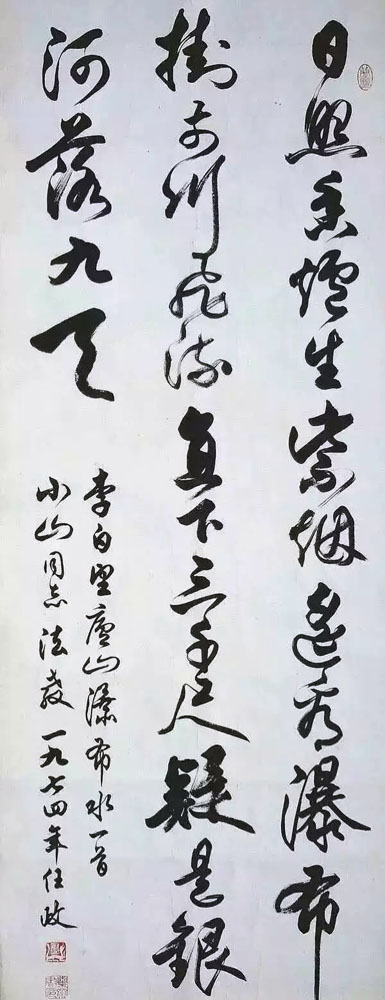 日照香炉生紫烟遥看瀑布
挂前川飞流直下三千尺疑是银
河落九天
李白望庐山瀑布水一首
小山同志法教一九七四年任政